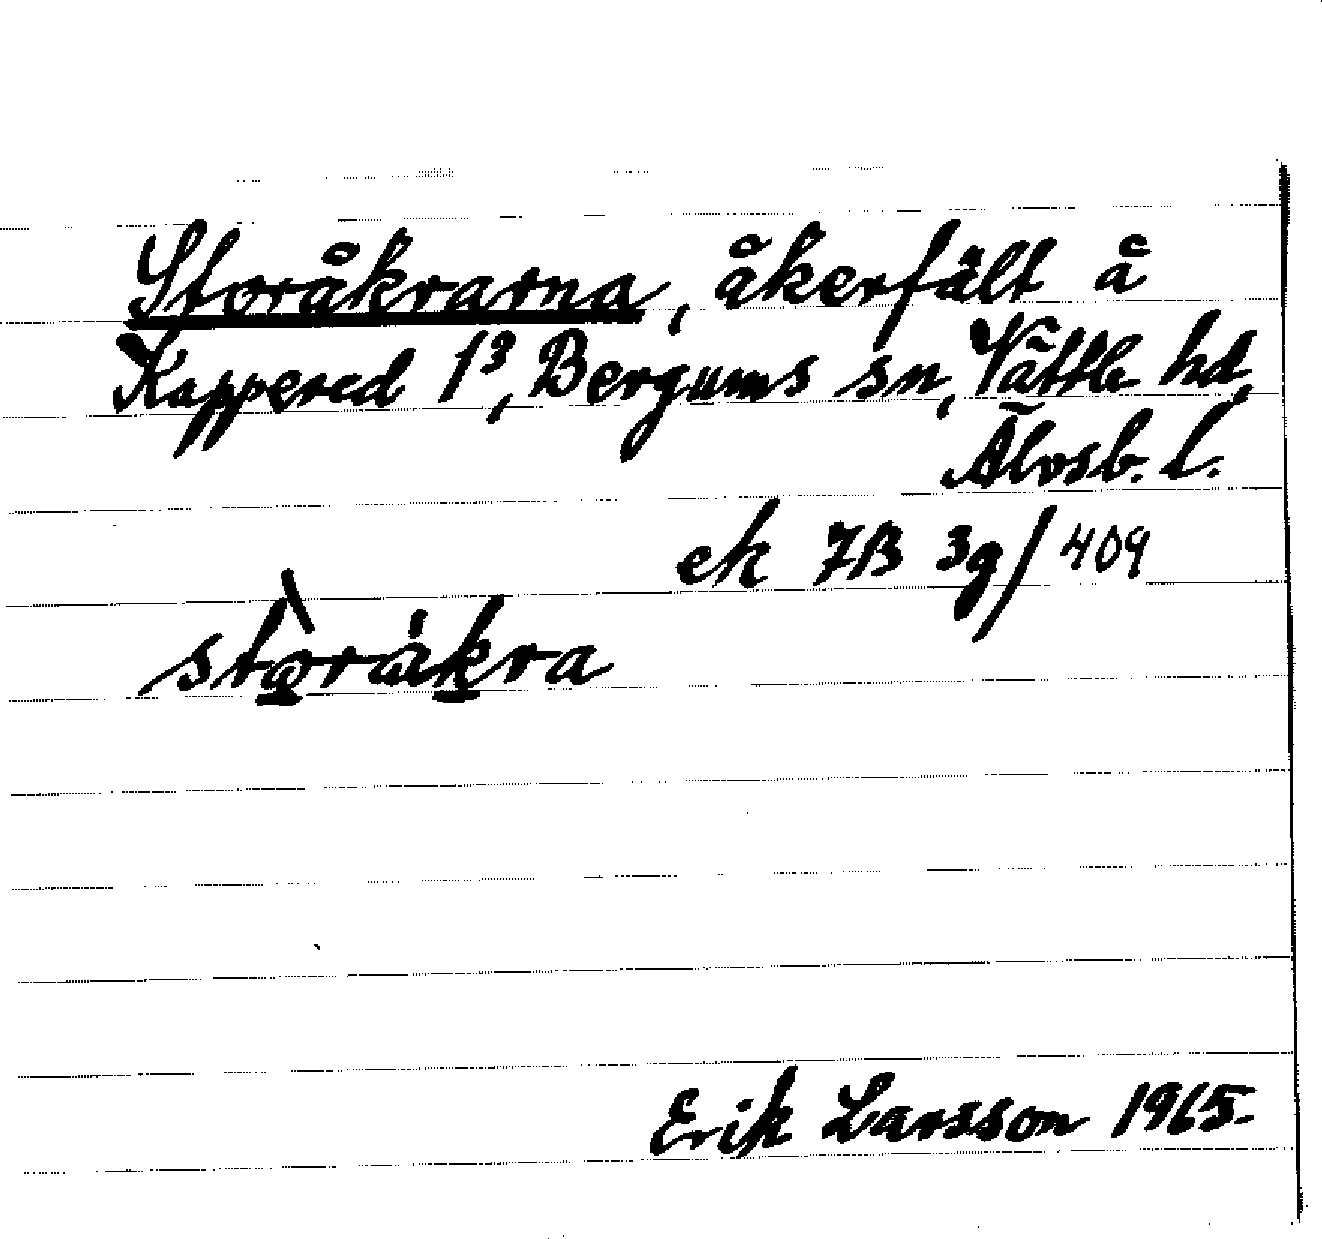 Storåkrarna, åkerfält å
Kappered 1³, Bergums sn, Vättle hd,
Älvsb. l.
ek 7B 3g/409
stò̲råk̲ra
Erik Larsson 1965.